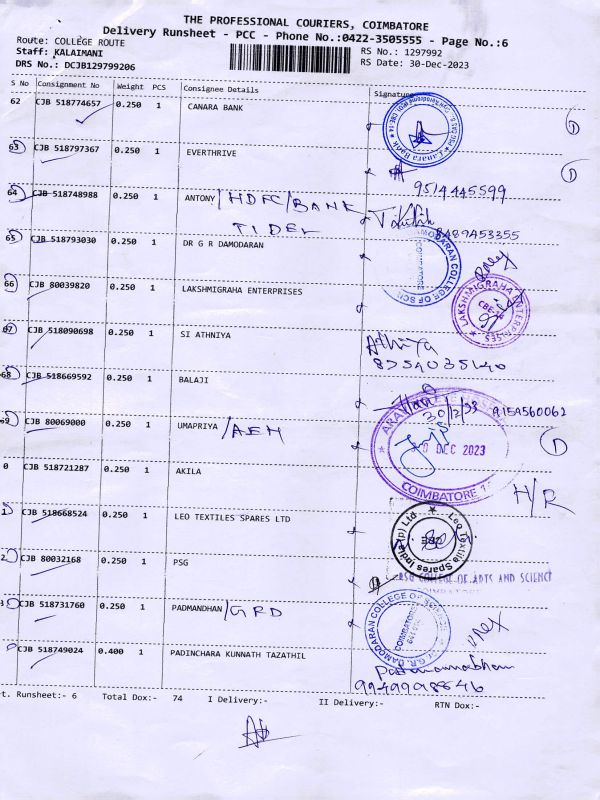 THE PROFESSIONAL COURIERS, COIMBATORE
Delivery Runsheet - PCC - Phone No.:0422-3505555 - Page No.:6
Route: COLLEGE ROUTE
Staff: KALAIMANI
RS No.: 1297992
DRS No.: DCJB129799206
RS Date: 30-Dec-2023
S No Consignment No Weight PCS Consignee Details Signature
62 CJB 518774657 0.250 1 CANARA BANK
Canara Bank
63 CJB 518797367 0.250 1 EVERTHRIVE
9514445599
64 CJB 518748988 0.250 1 ANTONY /HDFC/BANK
TIDEL
8489453355
65 CJB 518793030 0.250 1 DR G R DAMODARAN
COIMBATORE
66 CJB 80039820 0.250 1 LAKSHMIGRAHA ENTERPRISES
LAKSHMIGRAHA ENTERPRISES
CBE-14
67 CJB 518090698 0.250 1 SI ATHNIYA
Athniya
8754035140
68 CJB 518669592 0.250 1 BALAJI
69 CJB 80069000 0.250 1 UMAPRIYA /AEH
DEC 2023
COIMBATORE
0 CJB 518721287 0.250 1 AKILA
H/R
1 CJB 518668524 0.250 1 LEO TEXTILES SPARES LTD
Leo Textile Spares India (p) Ltd
2 CJB 80032168 0.250 1 PSG
PSG COLLEGE OF ARTS AND SCIENCE
COIMBATORE
3 CJB 518731760 0.250 1 PADMANDHAN /GRD
G.R. DAMODARAN COLLEGE OF SCIENCE
COIMBATORE
CJB 518749024 0.400 1 PADINCHARA KUNNATH TAZATHIL
Padmanabhan
9949998646
t. Runsheet:- 6 Total Dox:- 74 I Delivery:- II Delivery:- RTN Dox:-